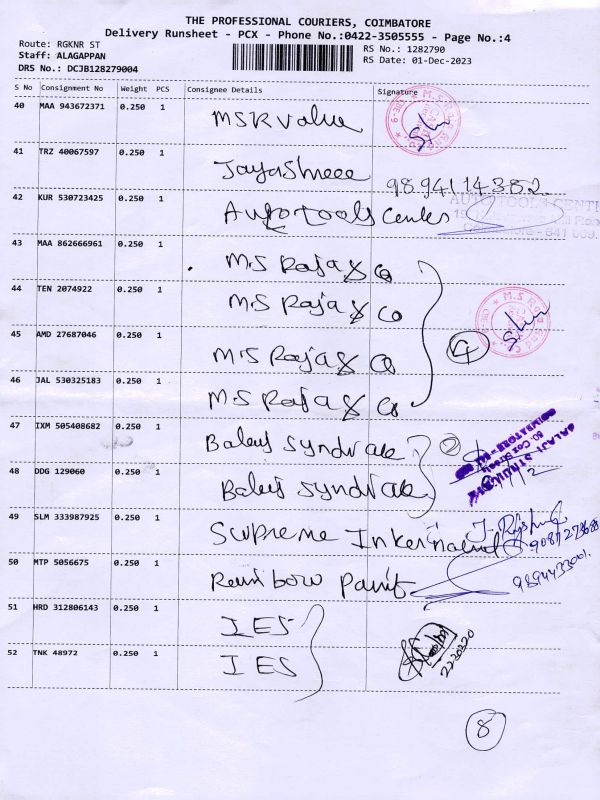 THE PROFESSIONAL COURIERS, COIMBATORE
Delivery Runsheet - PCX - Phone No.:0422-3505555 - Page No.:4
Route: RGKNR ST
RS No.: 1282790
Staff: ALAGAPPAN
RS Date: 01-Dec-2023
DRS No.: DCJB128279004
S No Consignment No Weight PCS Consignee Details Signature
40 MAA 943672371 0.250 1 MSR Value
41 TRZ 40067597 0.250 1 Jayashreee 9894114382
42 KUR 530723425 0.250 1 Auto tools Center
AUTO TOOLS CENT
43 MAA 862666961 0.250 1 M.S Raja & Co
44 TEN 2074922 0.250 1 M.S Raja & Co
45 AMD 27687046 0.250 1 M.S Raja & Co
4
46 JAL 530325183 0.250 1 M.S Raja & Co
47 IXM 505408682 0.250 1 Balaji Syndicate 2
48 DDG 129060 0.250 1 Balaji Syndicate
49 SLM 333987925 0.250 1 Supreme International
50 MTP 5056675 0.250 1 Rainbow Paint
51 HRD 312806143 0.250 1 IES
52 TNK 48972 0.250 1 IES
2230320
8